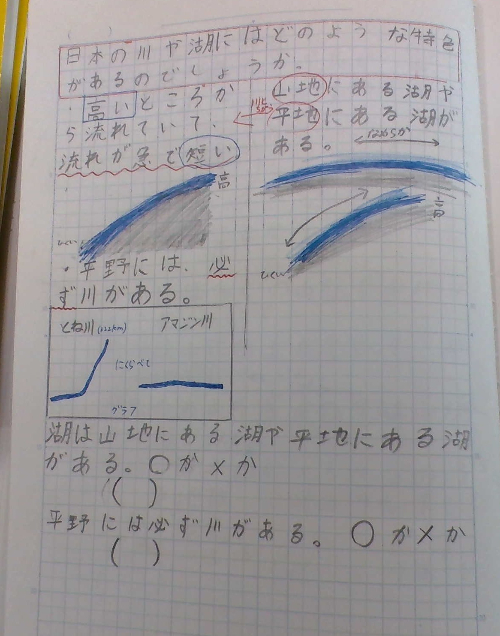 日本の川や湖にはどのような特色
があるのでしょうか。
・高いところか
ら流れていて、
流れが急で短い
高
ひくい
・平野には、必
ず川がある。
山地にある湖や
平地にある湖が
ある。
なめらか
高
ひくい
とね川
アマゾン川
にくらべて
グラフ
湖は山地にある湖や平地にある湖
がある。○か×か
( )
平野には必ず川がある。○か×か
( )